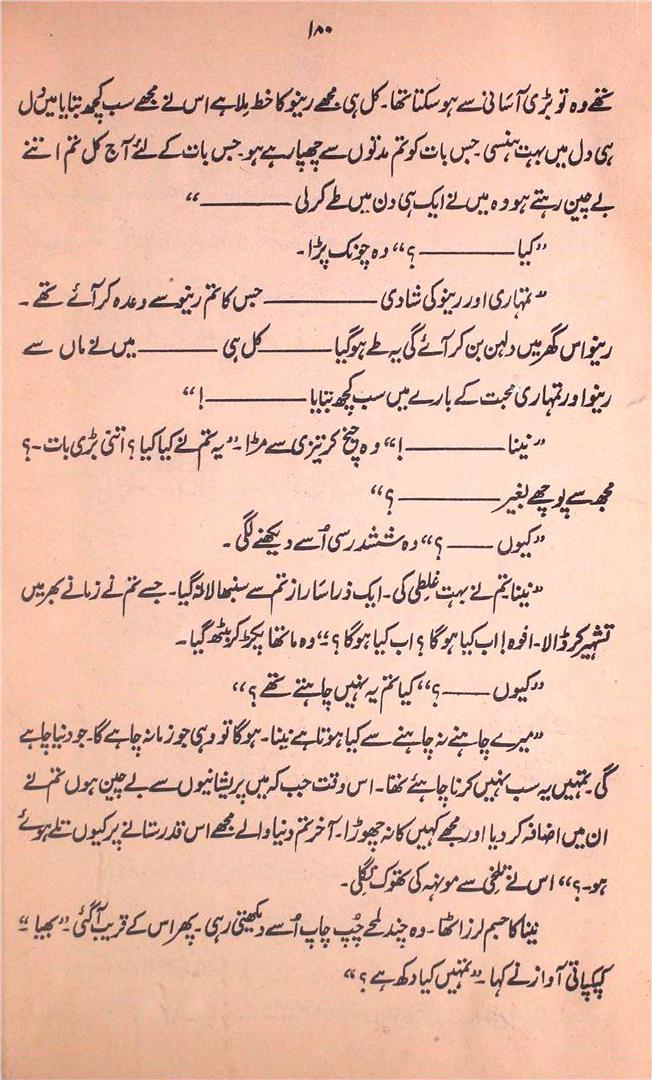 ۱۸۰
تھے وہ تو بڑی آسانی سے ہوسکتا تھا۔ کل ہی مجھے رینو کا خط ملا ہے اس نے مجھے سب کچھ بتایا میں دل
ہی دل میں بہت ہنسی۔ جس بات کو تم مدتوں سے چھپا رہے ہو۔ جس بات کے لئے آج کل تم اتنے
بے چین رہتے ہو وہ میں نے ایک ہی دن میں طے کر لی ———"
"کیا ———؟" وہ چونک پڑا۔
"تمہاری اور رینو کی شادی ——— جس کا تم رینو سے وعدہ کر آئے تھے۔
رینو اس گھر میں دلہن بن کر آئے گی یہ طے ہوگیا ——— کل ہی ——— میں نے ماں سے
رینو اور تمہاری محبت کے بارے میں سب کچھ بتایا ———!"
"نینا ———!" وہ چیخ کر تیزی سے مڑا۔ "یہ تم نے کیا کیا؟ اتنی بڑی بات۔؟
مجھ سے پوچھے بغیر ———؟"
"کیوں ———؟" وہ ششدر سی اُسے دیکھنے لگی۔
"نینا۔ تم نے بہت غلطی کی۔ ایک ذرا سا راز تم سے سنبھالا نہ گیا۔ جسے تم نے زمانے بھر میں
تشہیر کر ڈالا۔ افوہ! اب کیا ہوگا؟ اب کیا ہوگا؟" وہ ماتھا پکڑ کر بیٹھ گیا۔
"کیوں ———؟" کیا تم یہ نہیں چاہتے تھے؟"
"میرے چاہنے نہ چاہنے سے کیا ہوتا ہے نینا۔ ہوگا تو وہی جو زمانہ چاہے گا۔ جو دنیا چاہے
گی۔ تمہیں یہ سب نہیں کرنا چاہئے تھا۔ اس وقت جب کہ میں پریشانیوں سے بے چین ہوں تم نے
ان میں اضافہ کر دیا اور مجھے کہیں کا نہ چھوڑا۔ آخر تم دنیا والے مجھے اس قدر ستانے پر کیوں تلے ہوئے
ہو۔؟" اس نے تلخی سے مونہہ کی تھوک نگلی۔
نینا کا جسم لرز اٹھا۔ وہ چند لمحے چُپ چاپ اُسے دیکھتی رہی۔ پھر اس کے قریب آگئی۔ "بھیا"
کپکپاتی آواز نے کہا۔ "تمہیں کیا دکھ ہے؟"